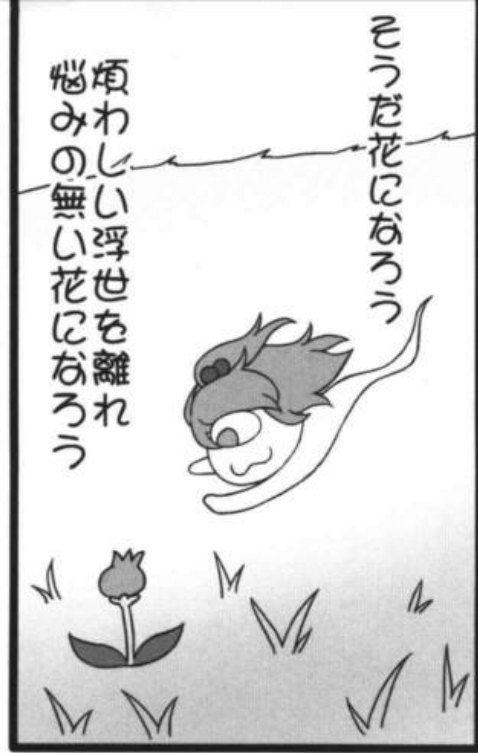 そうだ花になろう
煩わしい浮世を離れ
悩みの無い花になろう